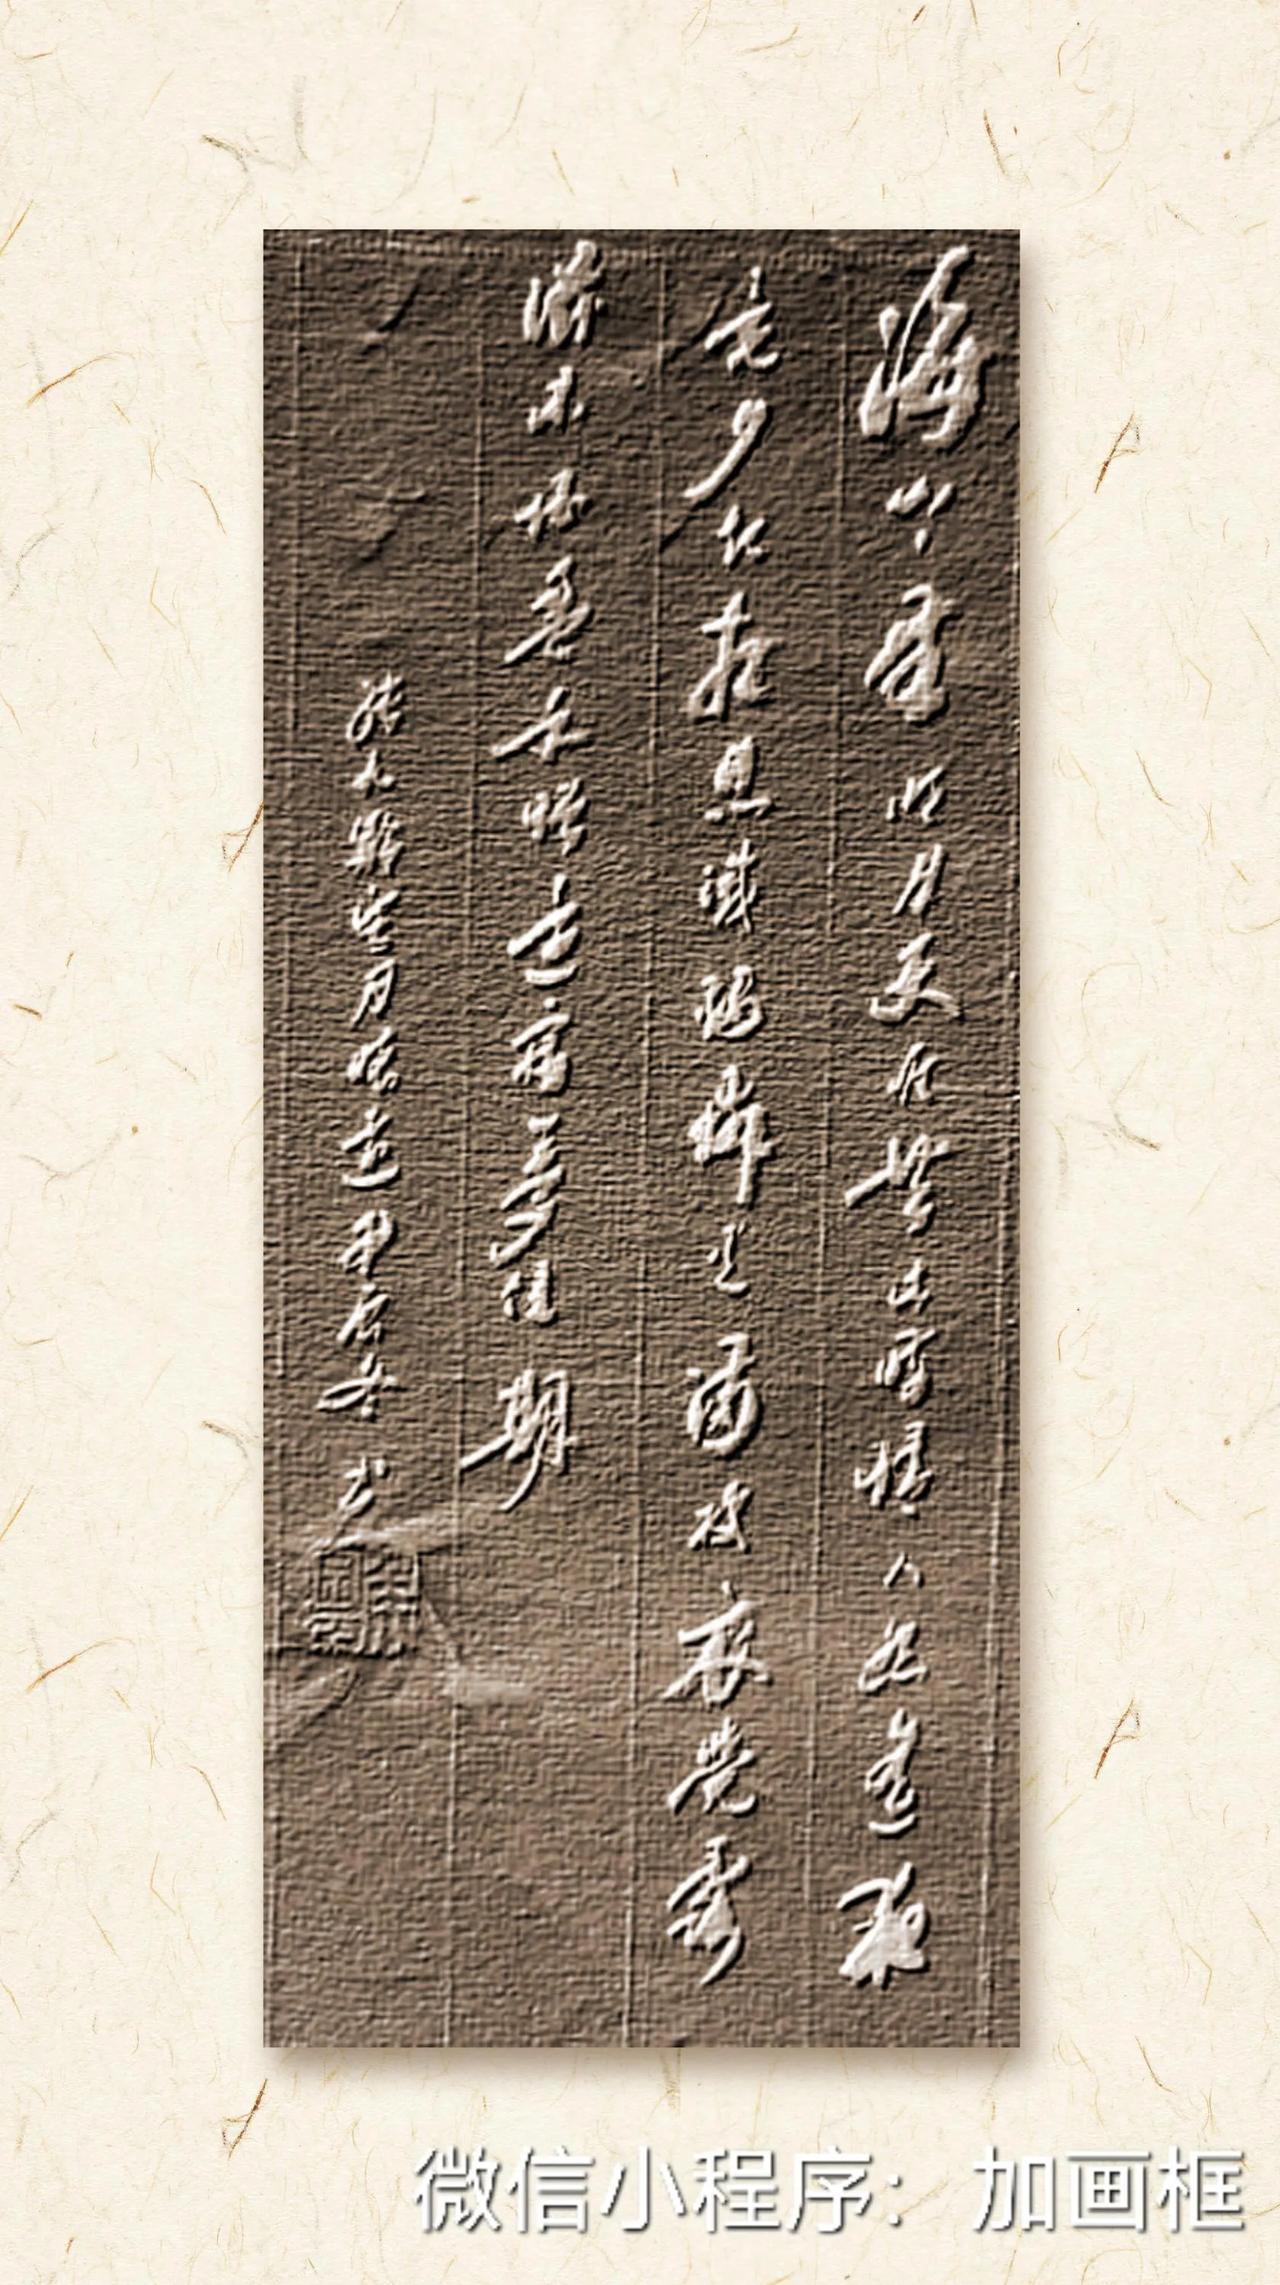 海上生明月天涯共此时情人怨遥夜
竟夕起相思灭烛怜光满披衣觉露
滋不堪盈手赠还寝梦佳期
张九龄望月怀远甲辰冬书
微信小程序：加画框